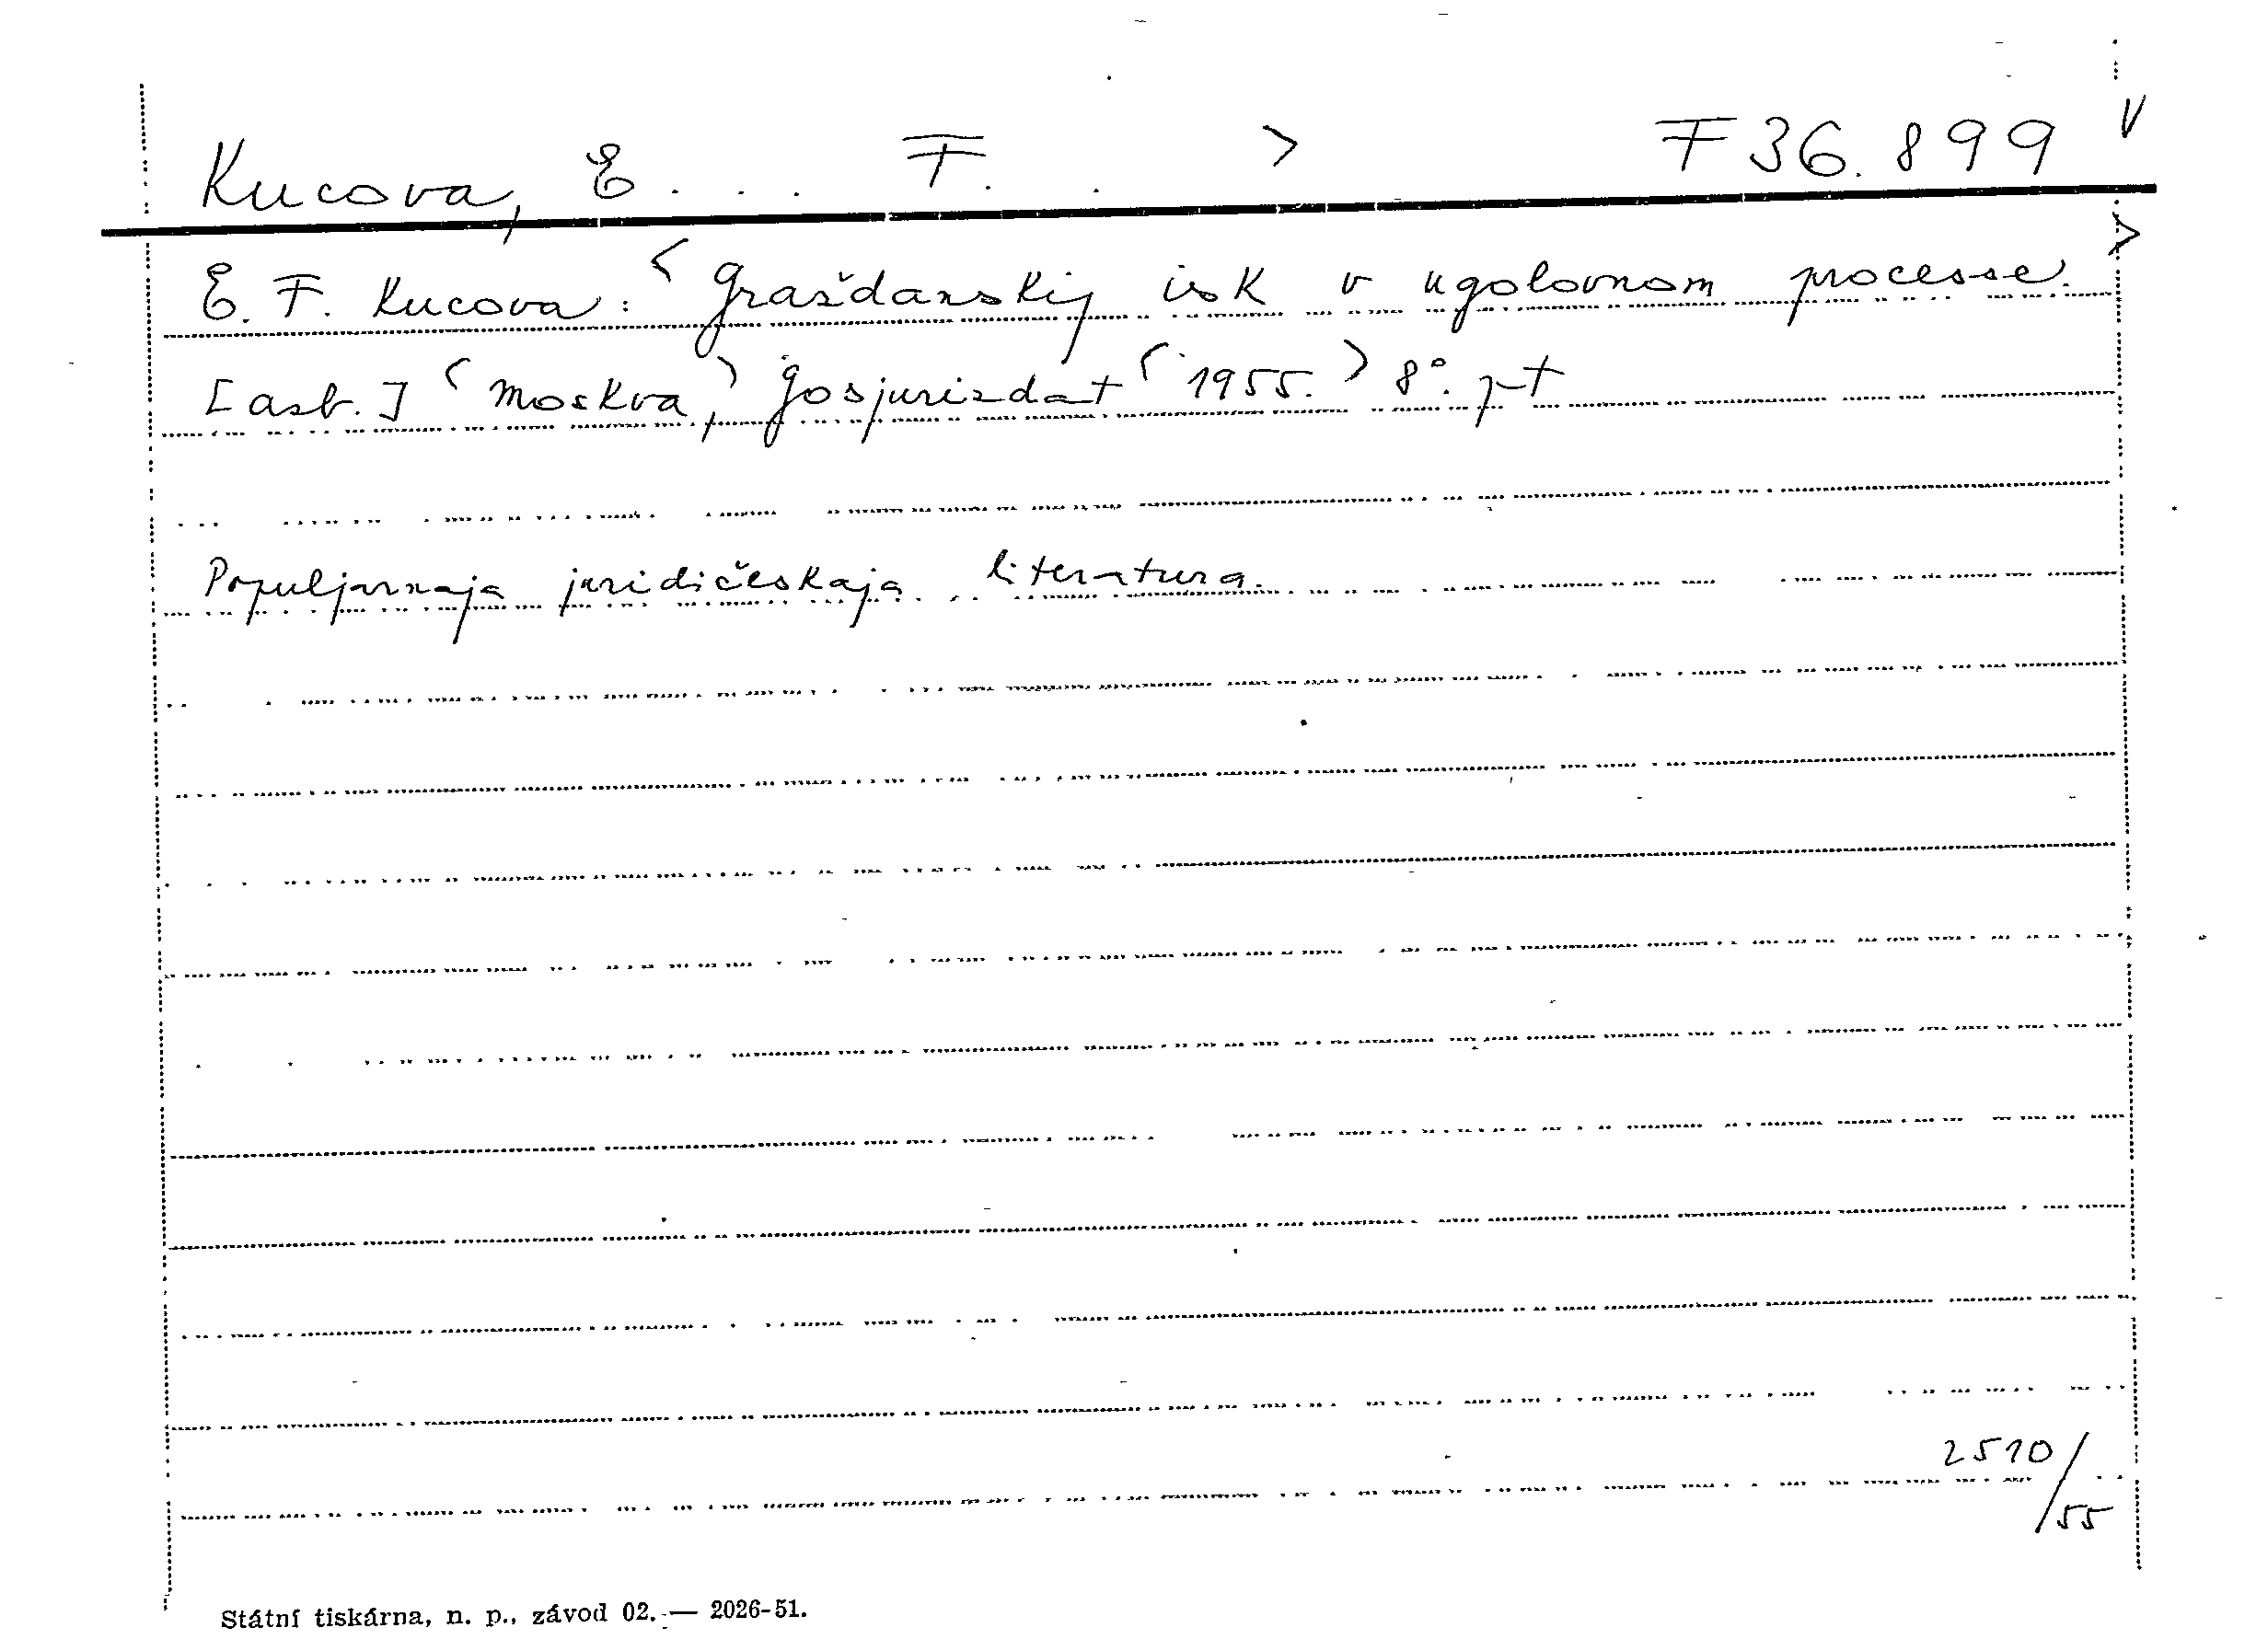 Kucova, E... F. . > F 36.899 V
E. F. Kucova: < Graždanskij isk v ugolovnom processe. >
[azb.] < Moskva, > Gosjurizdat < 1955. > 8°. pt
Populjarnaja juridičeskaja literatura.
2510/55
Státní tiskárna, n. p., závod 02. — 2026-51.